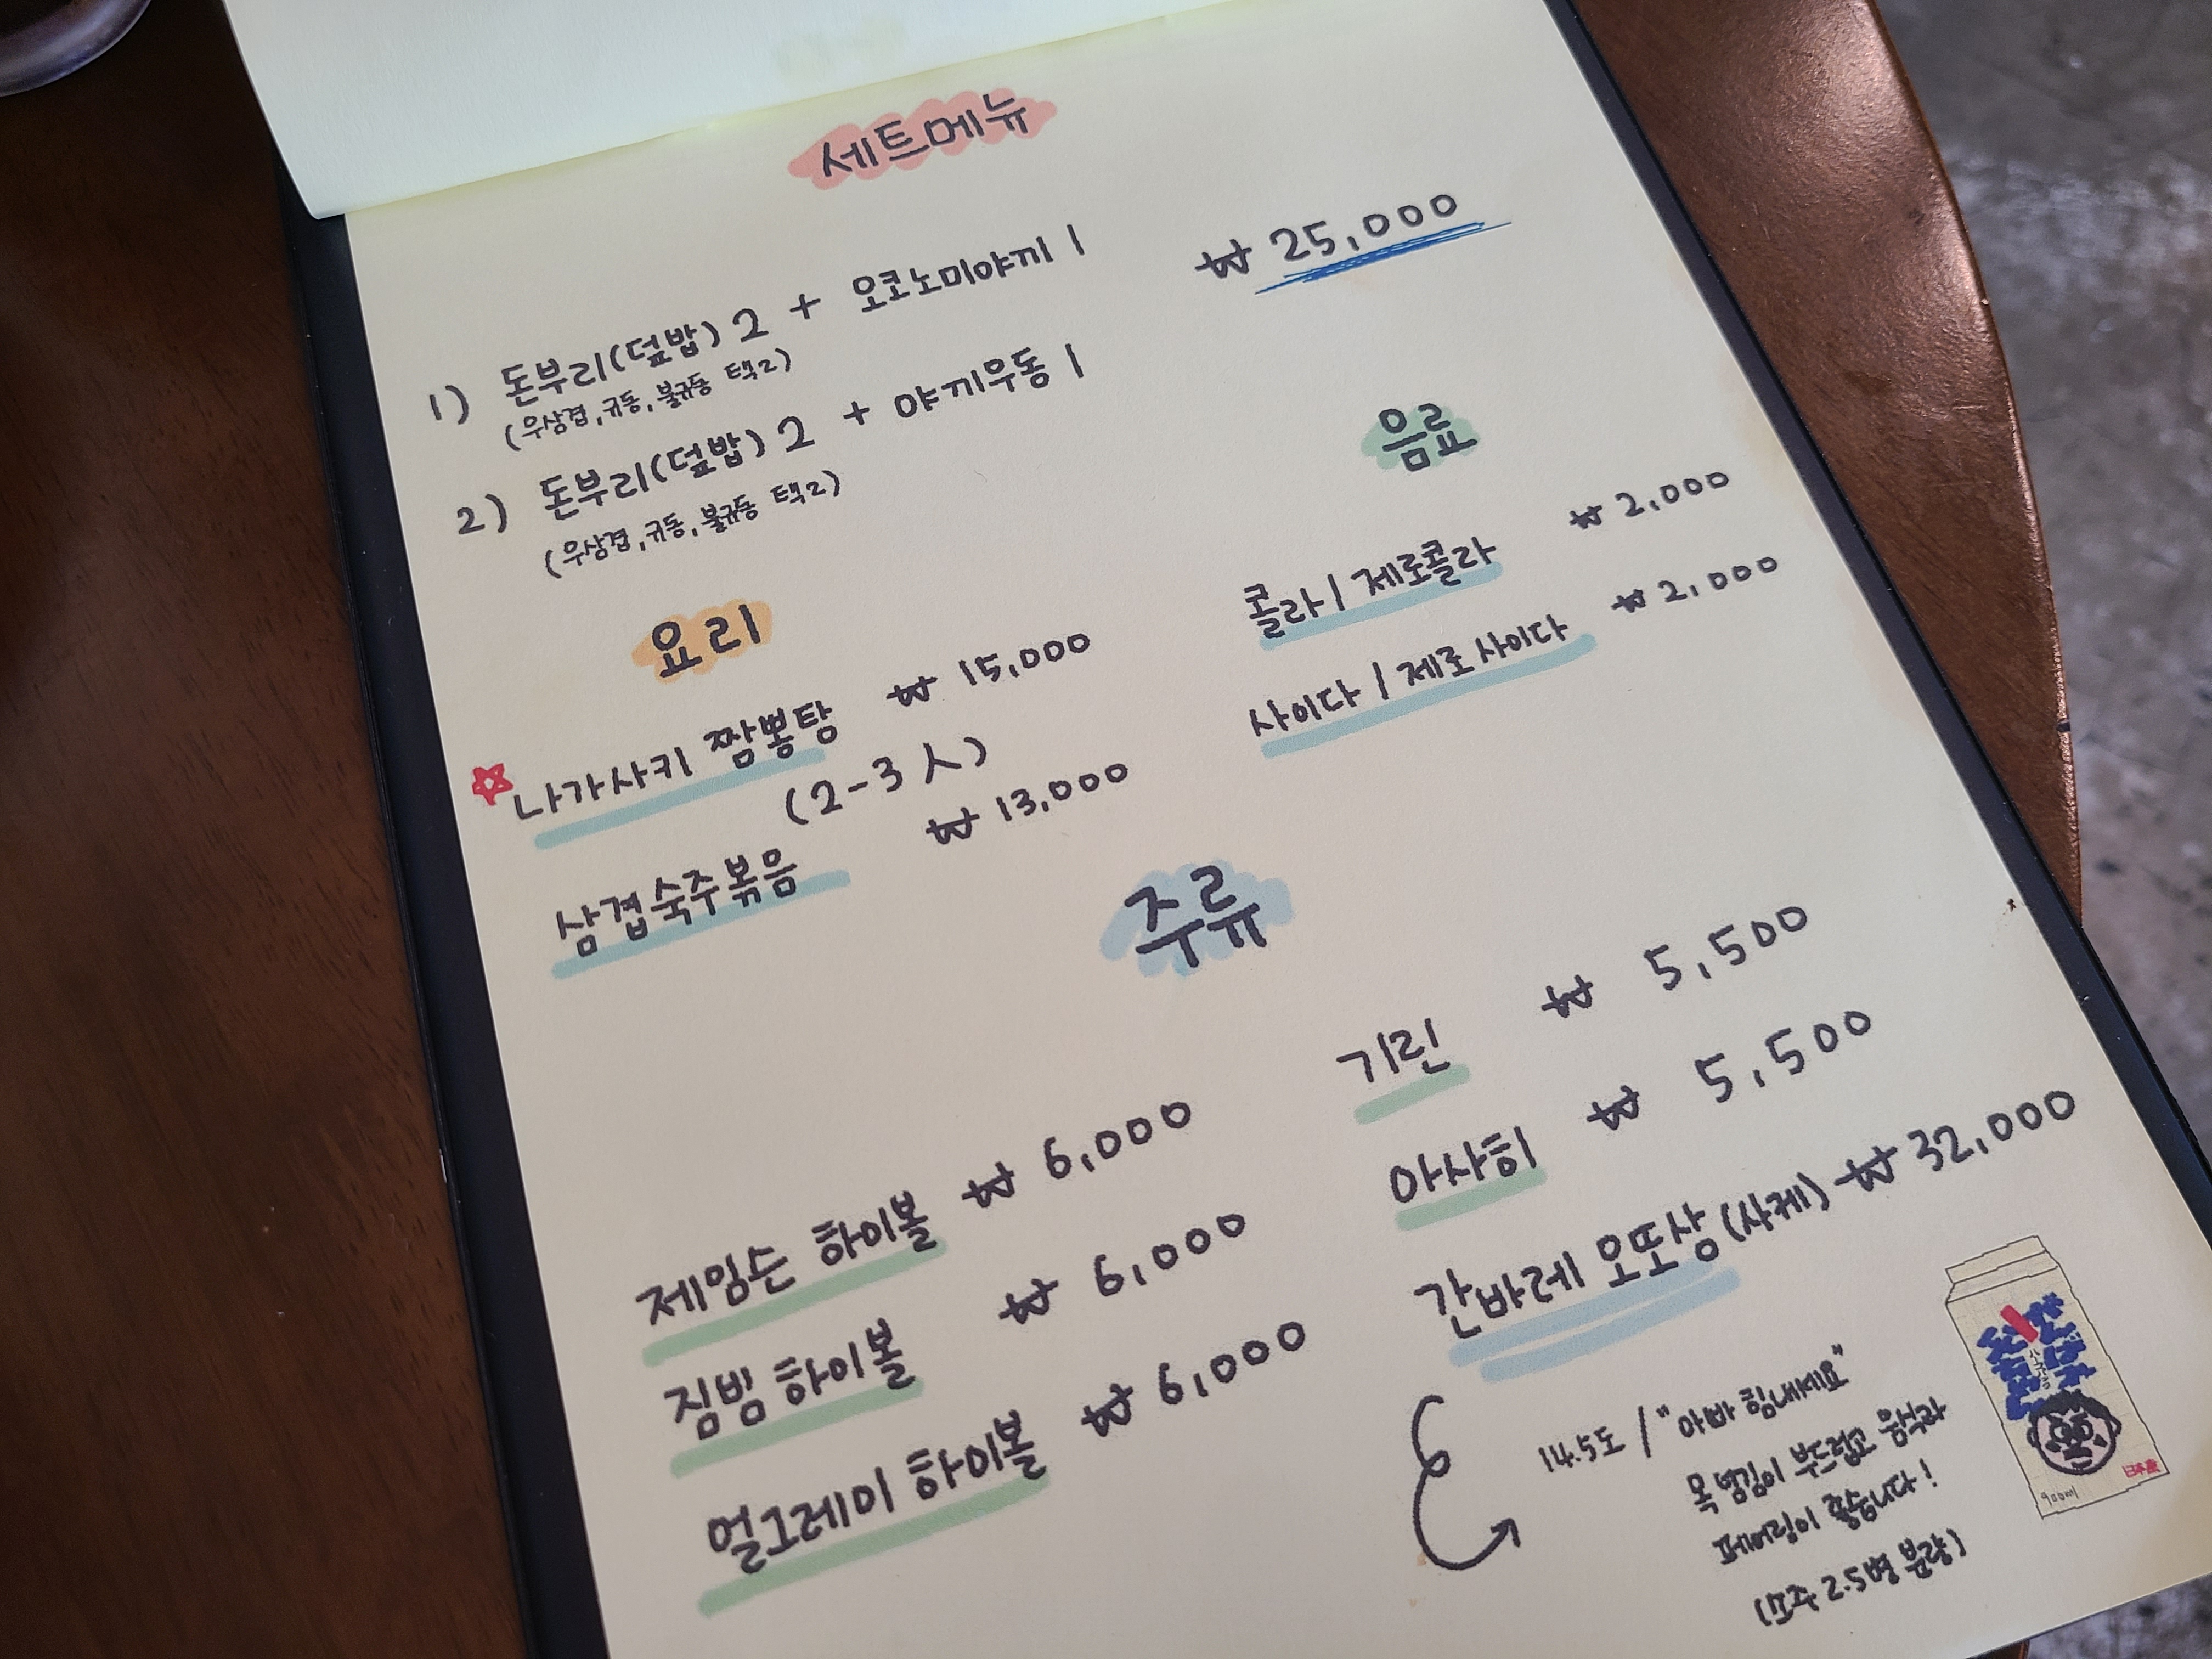 세트메뉴
1) 돈부리(덮밥) 2 + 오코노미야끼 1 ₩ 25,000
(우삼겹, 규동, 불규동 택2)
2) 돈부리(덮밥) 2 + 야끼우동 1
(우삼겹, 규동, 불규동 택2)
요리
나가사키 짬뽕탕 ₩ 15,000
(2-3 人)
삼겹숙주볶음 ₩ 13,000
음료
콜라 / 제로콜라 ₩ 2,000
사이다 / 제로사이다 ₩ 2,000
주류
제임슨 하이볼 ₩ 6,000
짐빔 하이볼 ₩ 6,000
얼그레이 하이볼 ₩ 6,000
기린 ₩ 5,500
아사히 ₩ 5,500
간바레 오또상 (사케) ₩ 32,000
14.5도 / "아빠 힘내세요"
목 넘김이 부드럽고 음식과
페어링이 좋습니다!
(소주 2.5병 분량)
900ml